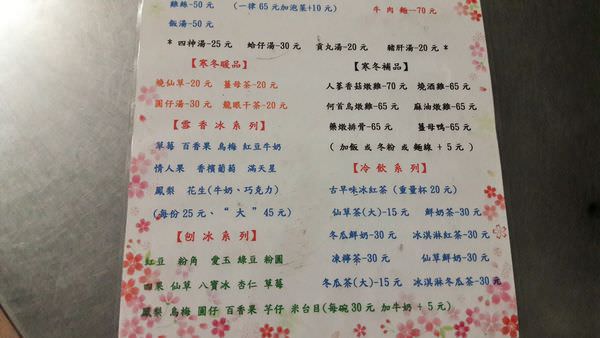 雞絲-50 元 (一律 65 元加泡菜+10 元) 牛肉麵-70 元
飯湯-50 元
* 四神湯-25 元 蛤仔湯-30 元 貢丸湯-20 元 豬肝湯-20 元 *
【寒冬暖品】
燒仙草-20 元 薑母茶-20 元
圓仔湯-30 元 龍眼干茶-20 元
【雪香冰系列】
草莓 百香果 烏梅 紅豆牛奶
情人果 香檳葡萄 滿天星
鳳梨 花生(牛奶、巧克力)
(每份 25 元、“大”45 元)
【刨冰系列】
紅豆 粉角 愛玉 綠豆 粉圓
四果 仙草 八寶冰 杏仁 草莓
鳳梨 烏梅 圓仔 百香果 芋仔 米台目(每碗 30 元 加牛奶 + 5 元)
【寒冬補品】
人蔘香菇燉雞-70 元 燒酒雞-65 元
何首烏燉雞-65 元 麻油燉雞-65 元
藥燉排骨-65 元 薑母鴨-65 元
( 加飯 或 冬粉 或 麵線 + 5 元 )
【冷飲系列】
古早味冰紅茶 (重量杯 20 元)
仙草茶(大)-15 元 鮮奶茶-30 元
冬瓜鮮奶-30 元 冰淇淋紅茶-30 元
凍檸茶-30 元 仙草鮮奶-30 元
冬瓜茶(大)-15 元 冰淇淋冬瓜茶-30 元